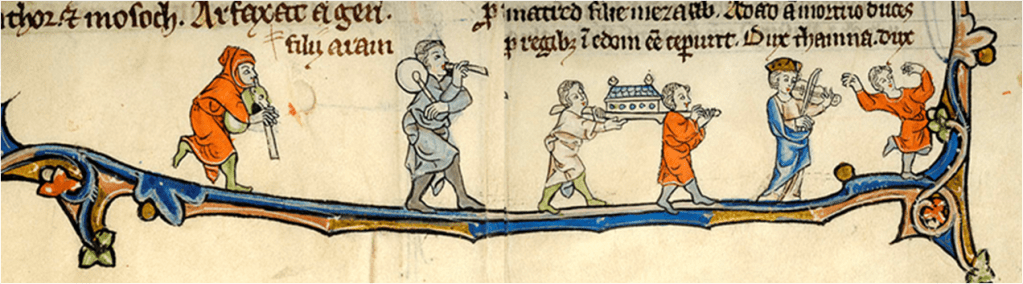 thor. et mosoch. Arfaxat a͛ gen̄.
filij aram
p̄ matred filie mezaab. Adad a͛ mortuo duces
p regibꝫ ī edom ēē ceperūt. Dux thamna. dux